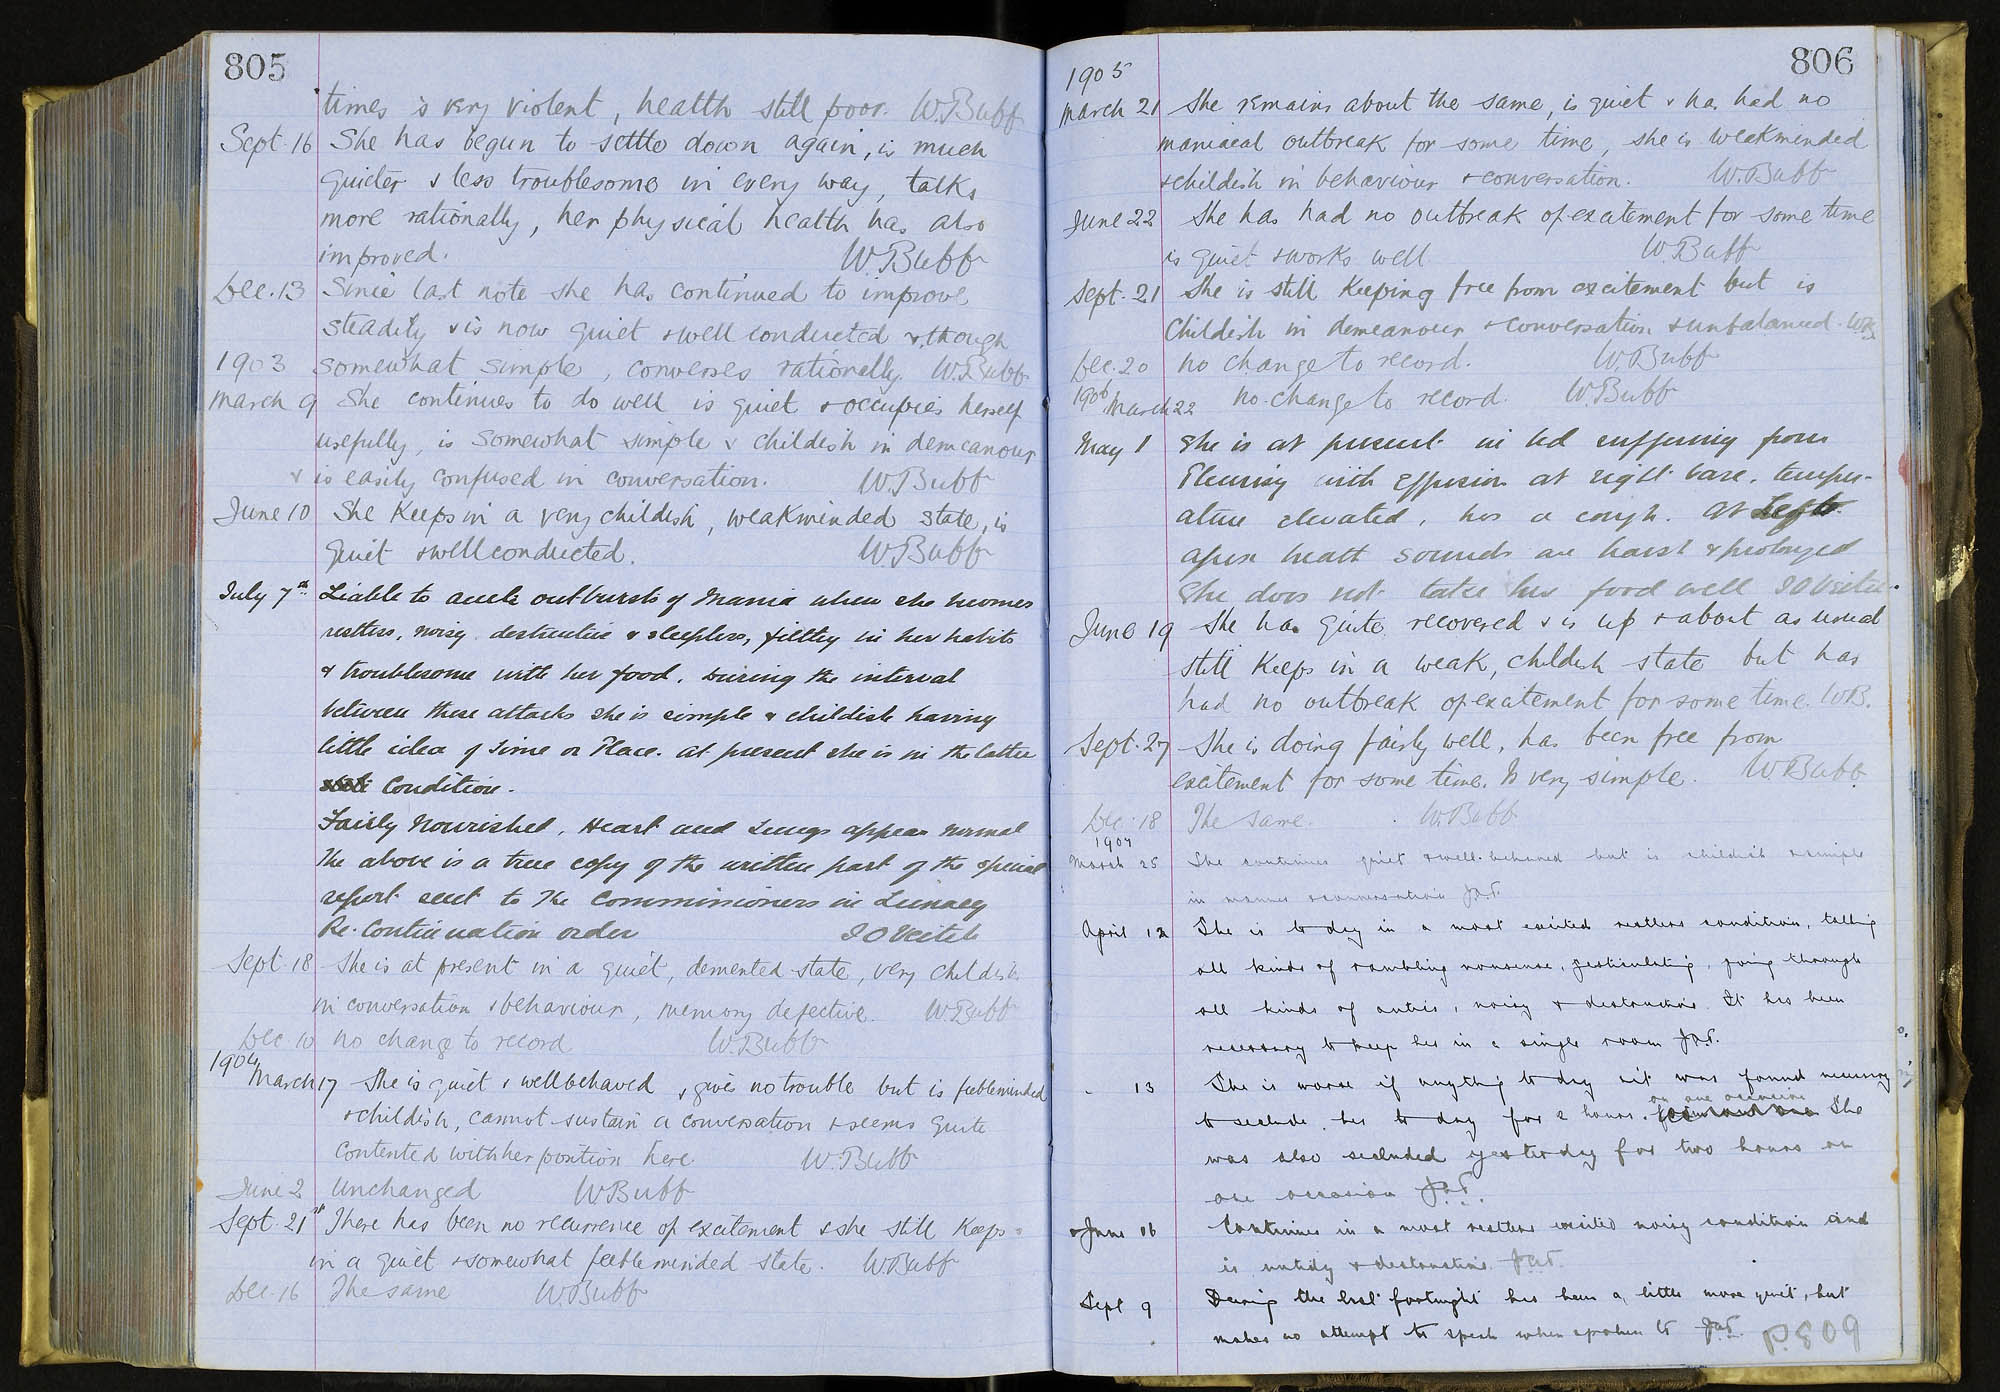 805
times is very violent, health still poor. W.Bubb
Sept. 16 She has begun to settle down again, is much
quieter & less troublesome in every way, talks
more rationally, her physical health has also
improved. W.Bubb
Dec. 13 Since last note she has continued to improve
steadily & is now quiet & well conducted & though
1903 somewhat simple, converses rationally. W.Bubb
March 9 She continues to do well is quiet & occupies herself
usefully, is somewhat simple & childish in demeanour
& is easily confused in conversation. W.Bubb
June 10 She keeps in a very childish, weakminded state, is
quiet & well conducted. W.Bubb
July 7th Liable to acute outbursts of Mania when she becomes
restless, noisy destructive & sleepless, filthy in her habits
& troublesome with her food. During the interval
between these attacks she is simple & childish having
little idea of Time or Place. At present she is in the latter
Condition.
Fairly Nourished, Heart and Lungs appear normal
The above is a true copy of the written part of the special
report sent to The Commissioners in Lunacy
Re. Continuation order J O Veitch
Sept. 18 She is at present in a quiet, demented state, very childish
in conversation & behaviour, memory defective. W.Bubb
Dec 10 No change to record W.Bubb
1904
March 17 She is quiet & wellbehaved, gives no trouble but is feebleminded
& childish, cannot sustain a conversation & seems quite
contented with her position here. W.Bubb
June 2 Unchanged W Bubb
Sept. 21st There has been no recurrence of excitement & she still keeps
in a quiet & somewhat feebleminded state. W.Bubb
Dec. 16 The same W.Bubb
806
1905
March 21 She remains about the same, is quiet & has had no
maniacal outbreak for some time, she is weakminded
& childish in behaviour & conversation. W.Bubb
June 22 She has had no outbreak of excitement for some time
is quiet & works well. W.Bubb
Sept. 21 She is still keeping free from excitement but is
childish in demeanour & conversation & unbalanced. WB
Dec. 20 No change to record. W.Bubb
1906 March 22 No change to record. W.Bubb
May 1 She is at present in bed suffering from
Pleurisy with effusion at right base, temper-
ature elevated, has a cough. At Left
apex breath sounds are harsh & prolonged
She does not take her food well J O Veitch.
June 19 She has quite recovered & is up & about as usual
still keeps in a weak, childish state but has
had no outbreak of excitement for some time. WB.
Sept. 27 She is doing fairly well, has been free from
excitement for some time. Is very simple. W Bubb.
Dec. 18 The same. W.Bubb
1907
March 25 She continues quiet & well-behaved but is childish & simple
in manner & conversation
April 12 She is to day in a most excited restless condition, talking
all kinds of rambling nonsense, gesticulating, going through
all kinds of antics, noisy & destructive. It has been
necessary to keep her in a single room
" 13 She is worse if anything to day & it was found necessary
on one occasion
to seclude her to day for 2 hours. She
was also secluded yesterday for two hours on
one occasion
June 16 Continues in a most restless excited noisy condition and
is untidy & destructive.
Sept 9 During the last fortnight has been a little more quiet, but
makes no attempt to speak when spoken to
P.809